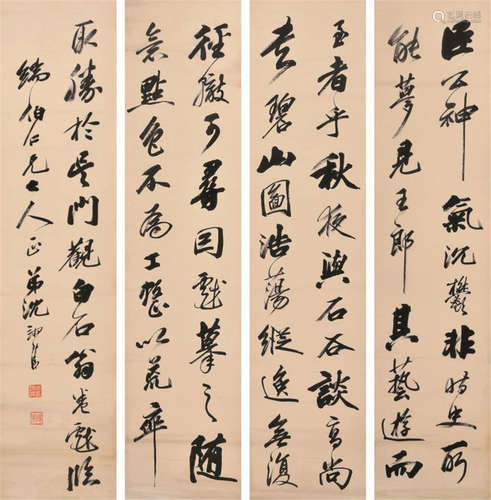 巨公神氣沉鬱非時史所
能夢見王郎其藝遊而
至者乎秋夜與石谷談高尚
書碧山圖浩蕩縱逸無復
徑轍可尋因戲摹之隨
意點色不為工整以荒率
取勝於吳門觀白石翁卷戲臨
瑞伯仁兄大人正弟沈翊清